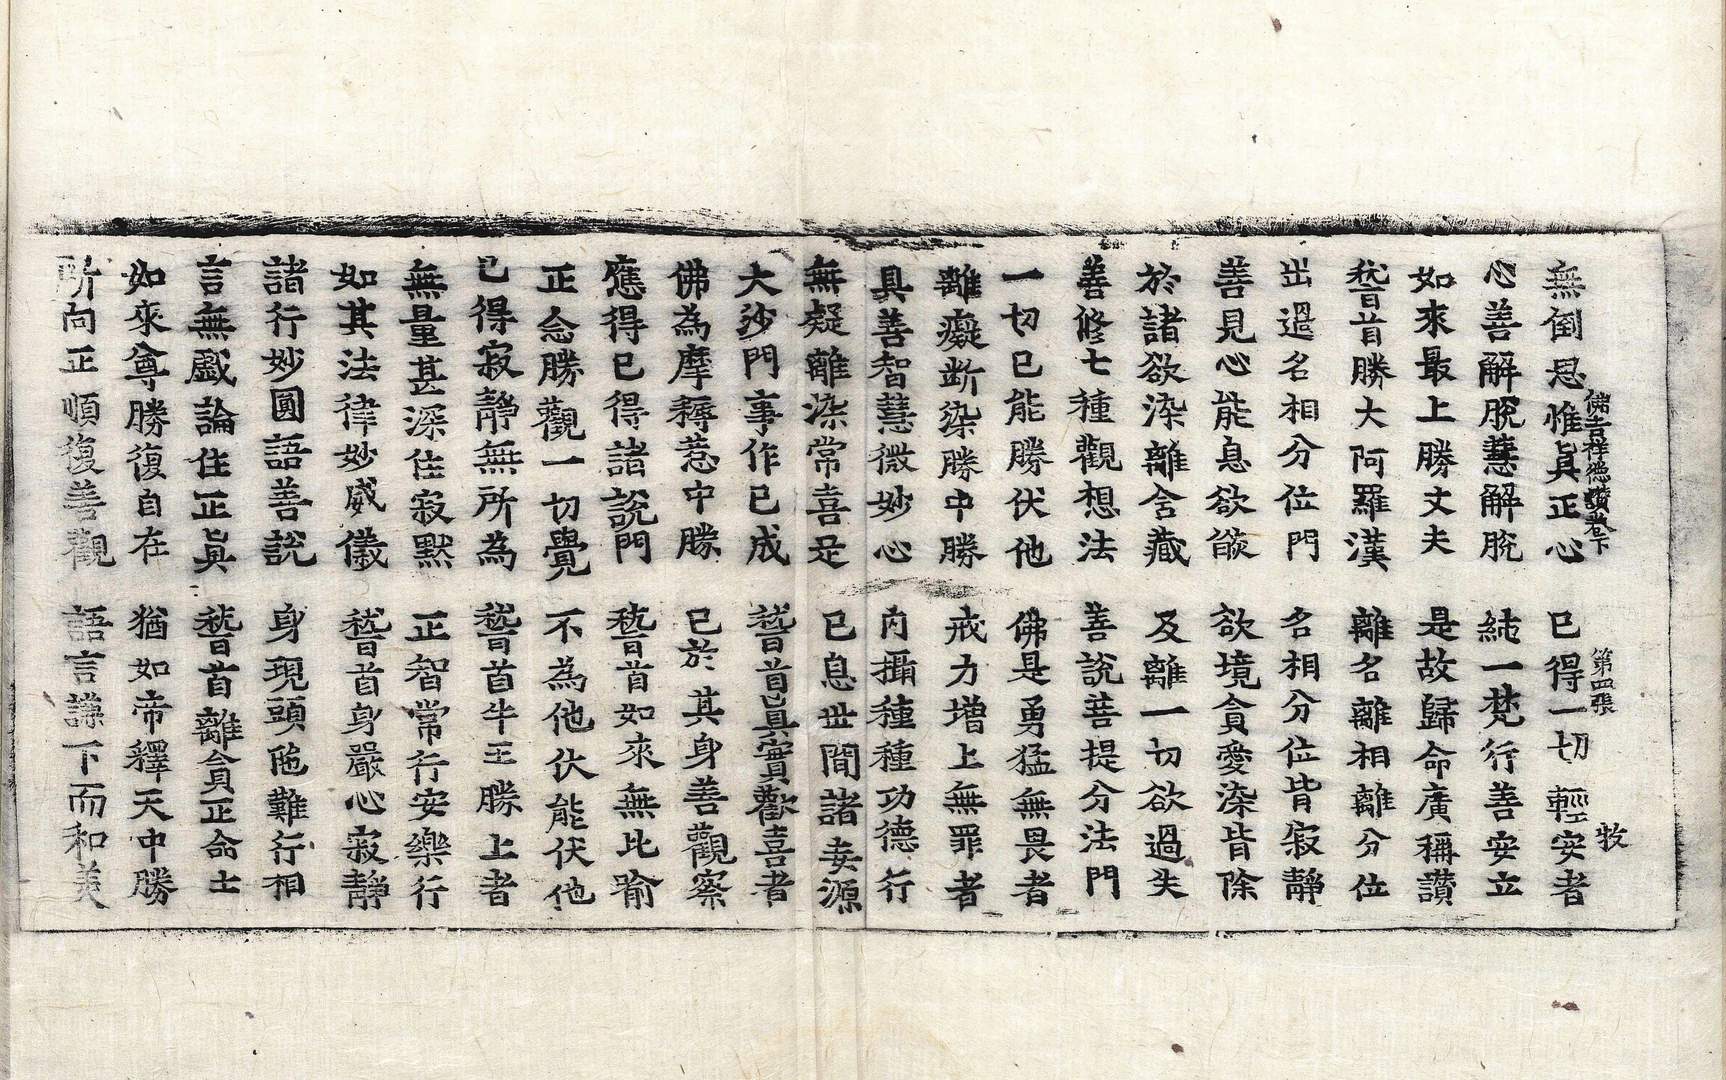 佛吉祥德讚卷下 第四張 牧
無倒思惟眞正心 已得一切輕安者
心善解脫慧解脫 純一梵行善安立
如來最上勝丈夫 是故歸命廣稱讚
稽首勝大阿羅漢 離名離相離分位
出過名相分位門 名相分位皆寂靜
善見心能息欲燄 欲境貪愛染皆除
於諸欲染離舍藏 及離一切欲過失
善修七種觀想法 善說菩提分法門
一切已能勝伏他 佛是勇猛無畏者
離癡斷染勝中勝 戒力增上無罪者
具善智慧微妙心 內攝種種功德行
無疑離染常喜足 已息世間諸妄源
大沙門事作已成 稽首眞實歡喜者
佛為摩耨惹中勝 已於其身善觀察
應得已得諸說門 稽首如來無比喻
正念勝觀一切覺 不為他伏能伏他
已得寂靜無所為 稽首牛王勝上者
無量甚深住寂默 正智常行安樂行
如其法律妙威儀 稽首身嚴心寂靜
諸行妙圓語善說 身現頭陁難行相
言無戲論住正眞 稽首離貪正命士
如來尊勝復自在 猶如帝釋天中勝
所向正順復善觀 語言謙下而和美